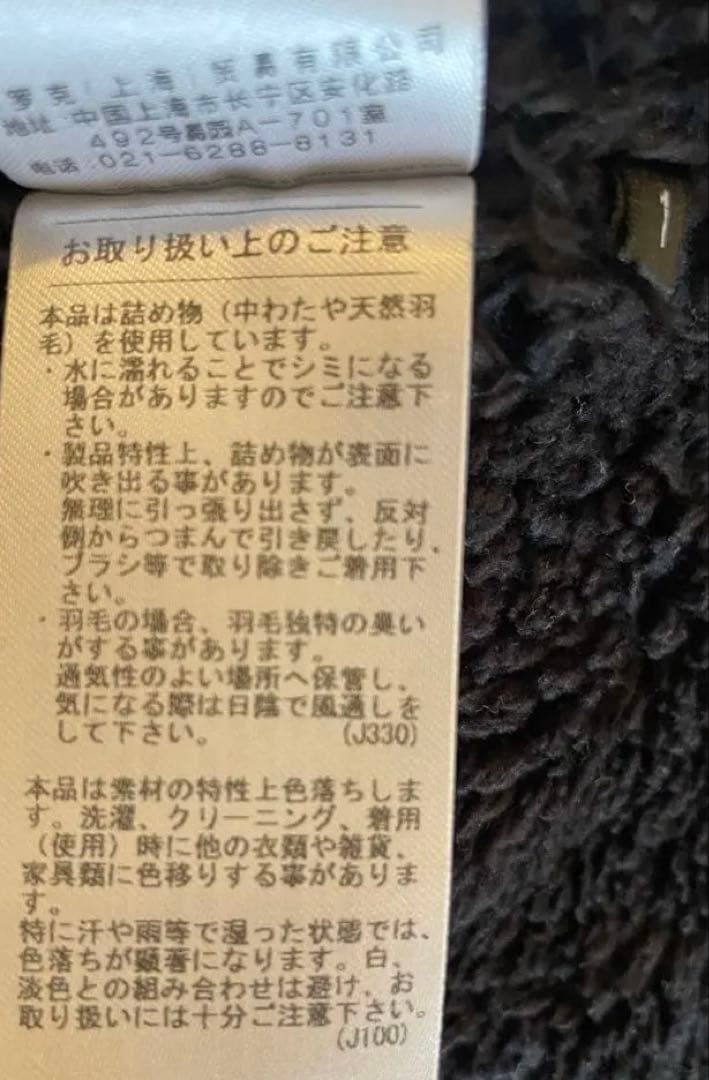 罗克(上海)贸易有限公司
地址 中国上海市长宁区安化路
492号易园A-701室
电话 021-6288-8131
お取り扱い上のご注意
本品は詰め物（中わたや天然羽
毛）を使用しています。
・水に濡れることでシミになる
場合がありますのでご注意下
さい。
・製品特性上、詰め物が表面に
吹き出る事があります。
無理に引っ張り出さず、反対
側からつまんで引き戻したり、
ブラシ等で取り除きご着用下
さい。
・羽毛の場合、羽毛独特の臭い
がする事があります。
通気性のよい場所へ保管し、
気になる際は日陰で風通しを
して下さい。 (J330)
本品は素材の特性上色落ちしま
す。洗濯、クリーニング、着用
（使用）時に他の衣類や雑貨、
家具類に色移りする事がありま
す。
特に汗や雨等で湿った状態では、
色落ちが顕著になります。白、
淡色との組み合わせは避け、お
取り扱いには十分ご注意下さい。
(J100)
1